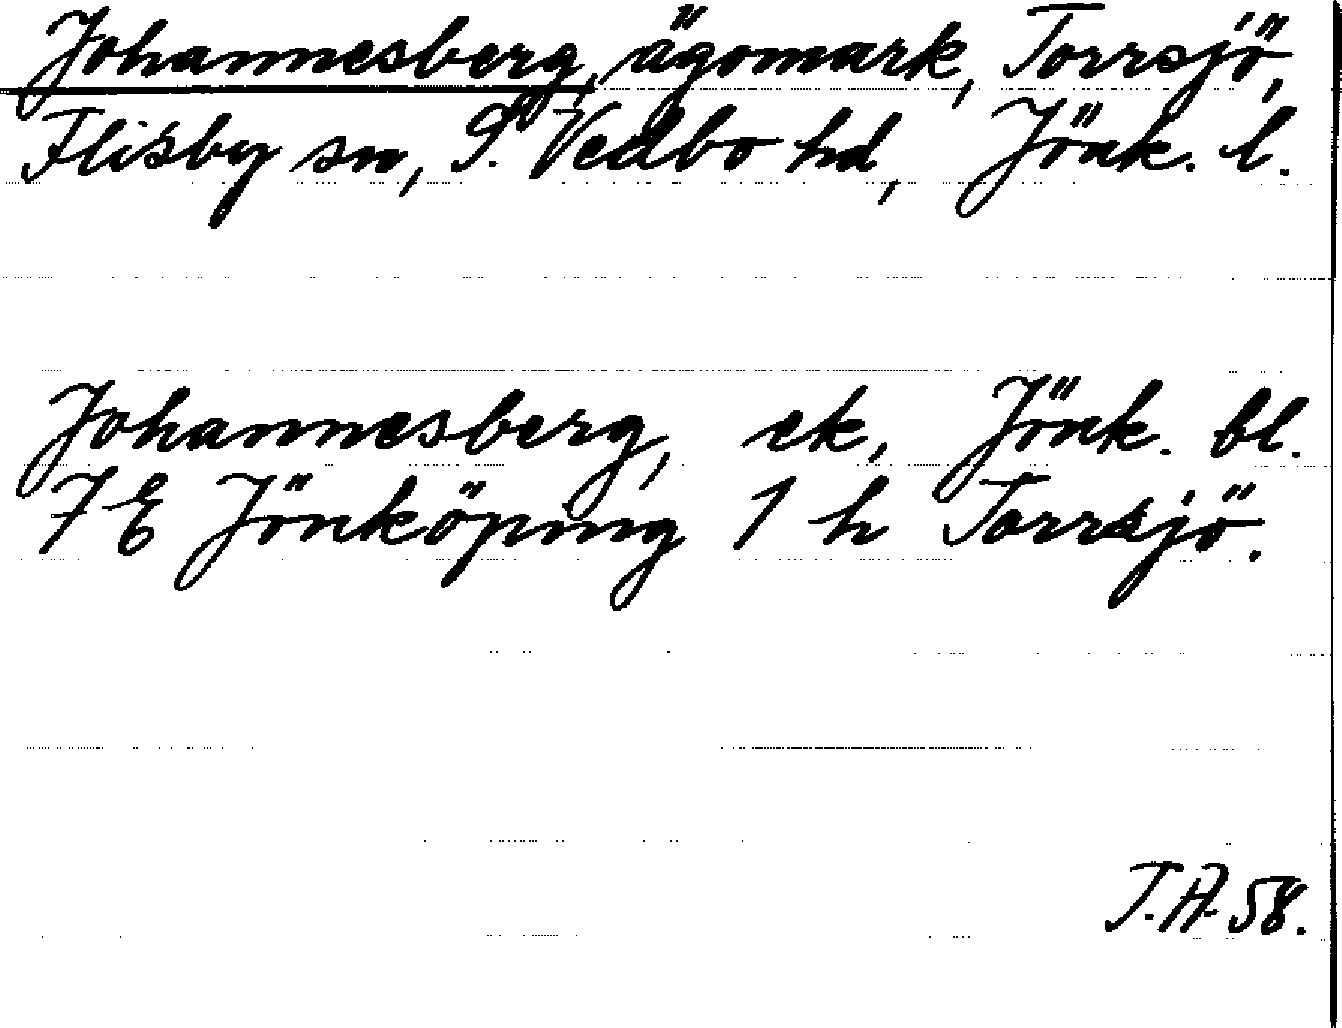 Johannesberg, ägomark, Torrsjö,
Flisby sn, S. Vedbo hd, Jönk. l.
Johannesberg, ek, Jönk. bl.
7 E Jönköping 1 h Torrsjö.
T.A. 58.